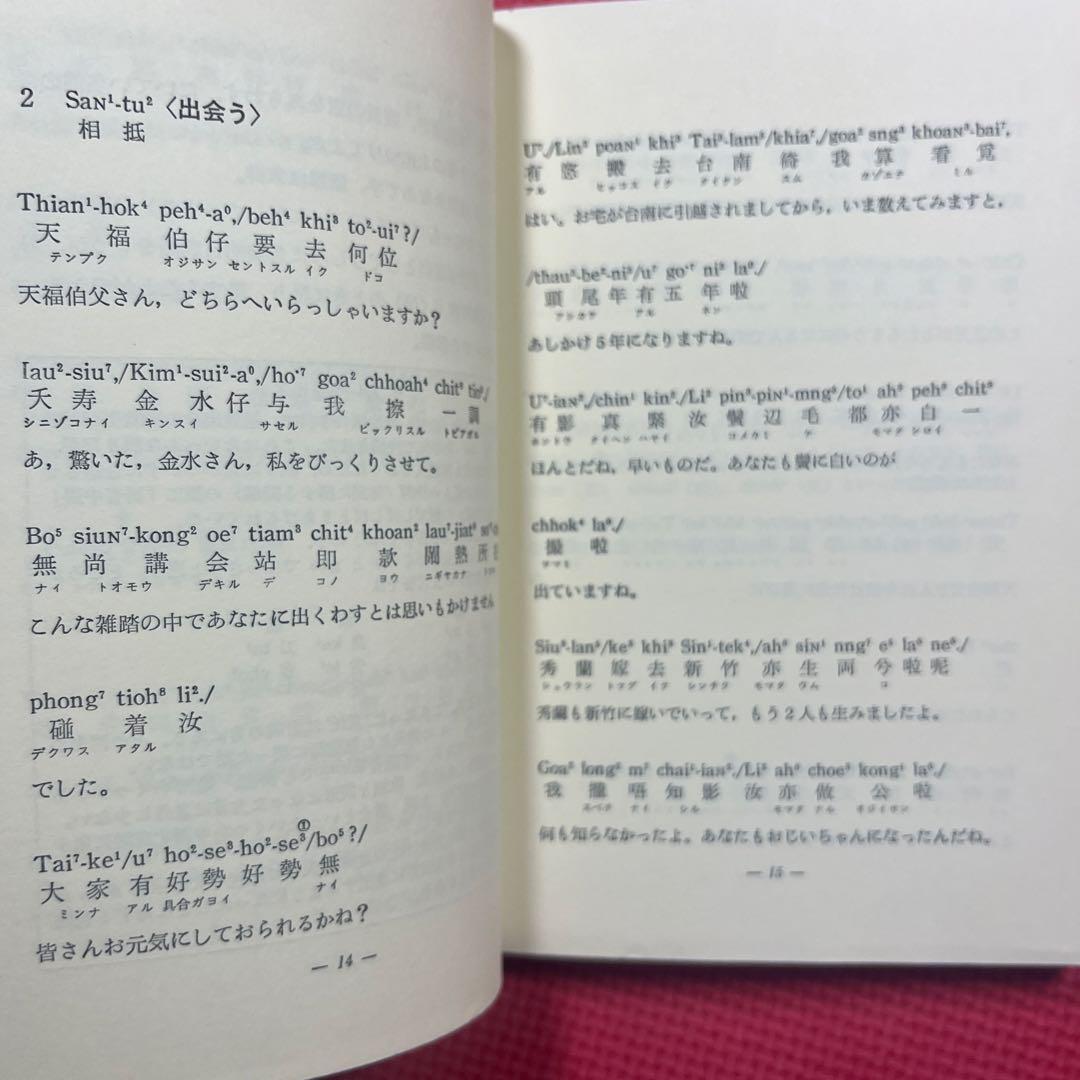 2 Saɴ¹-tu² 〈出会う〉
相抵
Thian¹-hok⁴ peh⁴-a⁰,/beh⁴ khi³ to²-ui⁷?/
天福伯仔要去何位
テンプク オジサン セントスル イク ドコ
天福伯父さん，どちらへいらっしゃいますか？
Iau²-siu⁷,/Kim¹-sui²-a⁰,/ho·⁷ goa² chhoah⁴ chit⁸ tio⁵./
夭寿金水仔与我擦一調
シニゾコナイ キンスイ サセル ビックリスル トビアガル
あ，驚いた，金水さん，私をびっくりさせて。
Bo⁵ siuɴ⁷-kong² oe⁷ tiam³ chit⁴ khoan² lau⁷-jiat⁸
無尚講会站即款鬧熱所
ナイ トオモウ デキル デ コノ ヨウ ニギヤカナ
こんな雑踏の中であなたに出くわすとは思いもかけません
phong⁷ tioh⁸ li²./
碰着汝
デクワス アタル
でした。
Tai⁷-ke¹/u⁷ ho²-se³-ho²-se³①/bo⁵?/
大家有好勢好勢無
ミンナ アル 具合ガヨイ ナイ
皆さんお元気にしておられるかね？
— 14 —
U⁷./Lin² poaɴ¹ khi³ Tai⁵-lam⁵/khia⁷,/goa² sng³ khoaɴ³-bai⁷,
有恁搬去台南徛我算看覓
アル ヒッコス イク タイナン スム カゾエテ ミル
はい。お宅が台南に引越されましてから，いま数えてみますと，
/thau⁵-be²-ni⁵/u⁷ go·⁷ ni⁵ la⁰./
頭尾年有五年啦
アシカケ アル ネン
あしかけ5年になりますね。
U⁷-iaɴ²,/chin¹ kin²./Li² pin³-piɴ¹-mng⁵/to¹ ah⁸ peh⁸ chit⁸
有影真緊汝鬢辺毛都亦白一
ホントウ タイヘン ハヤイ コメカミ ケ モマタ シロイ
ほんとだね，早いものだ。あなたも鬢に白いのが
chhok⁴ la⁰./
撮啦
ツマミ
出ていますね。
Siu³-lan⁵/ke³ khi³ Sin¹-tek⁴,/ah⁸ siɴ¹ nng⁷ e⁵ la⁰ ne⁰./
秀蘭嫁去新竹亦生両兮啦呢
シュウラン トツグ イク シンチク モマタ ウム コ
秀蘭も新竹に嫁いでいって，もう2人も生みましたよ。
Goa² long² m⁷ chai¹-iaɴ²./Li² ah⁸ choe³ kong¹ la⁰./
我攏唔知影汝亦做公啦
スベテ ナイ シル モマタ ナル オジイサン
何も知らなかったよ。あなたもおじいちゃんになったんだね。
— 15 —